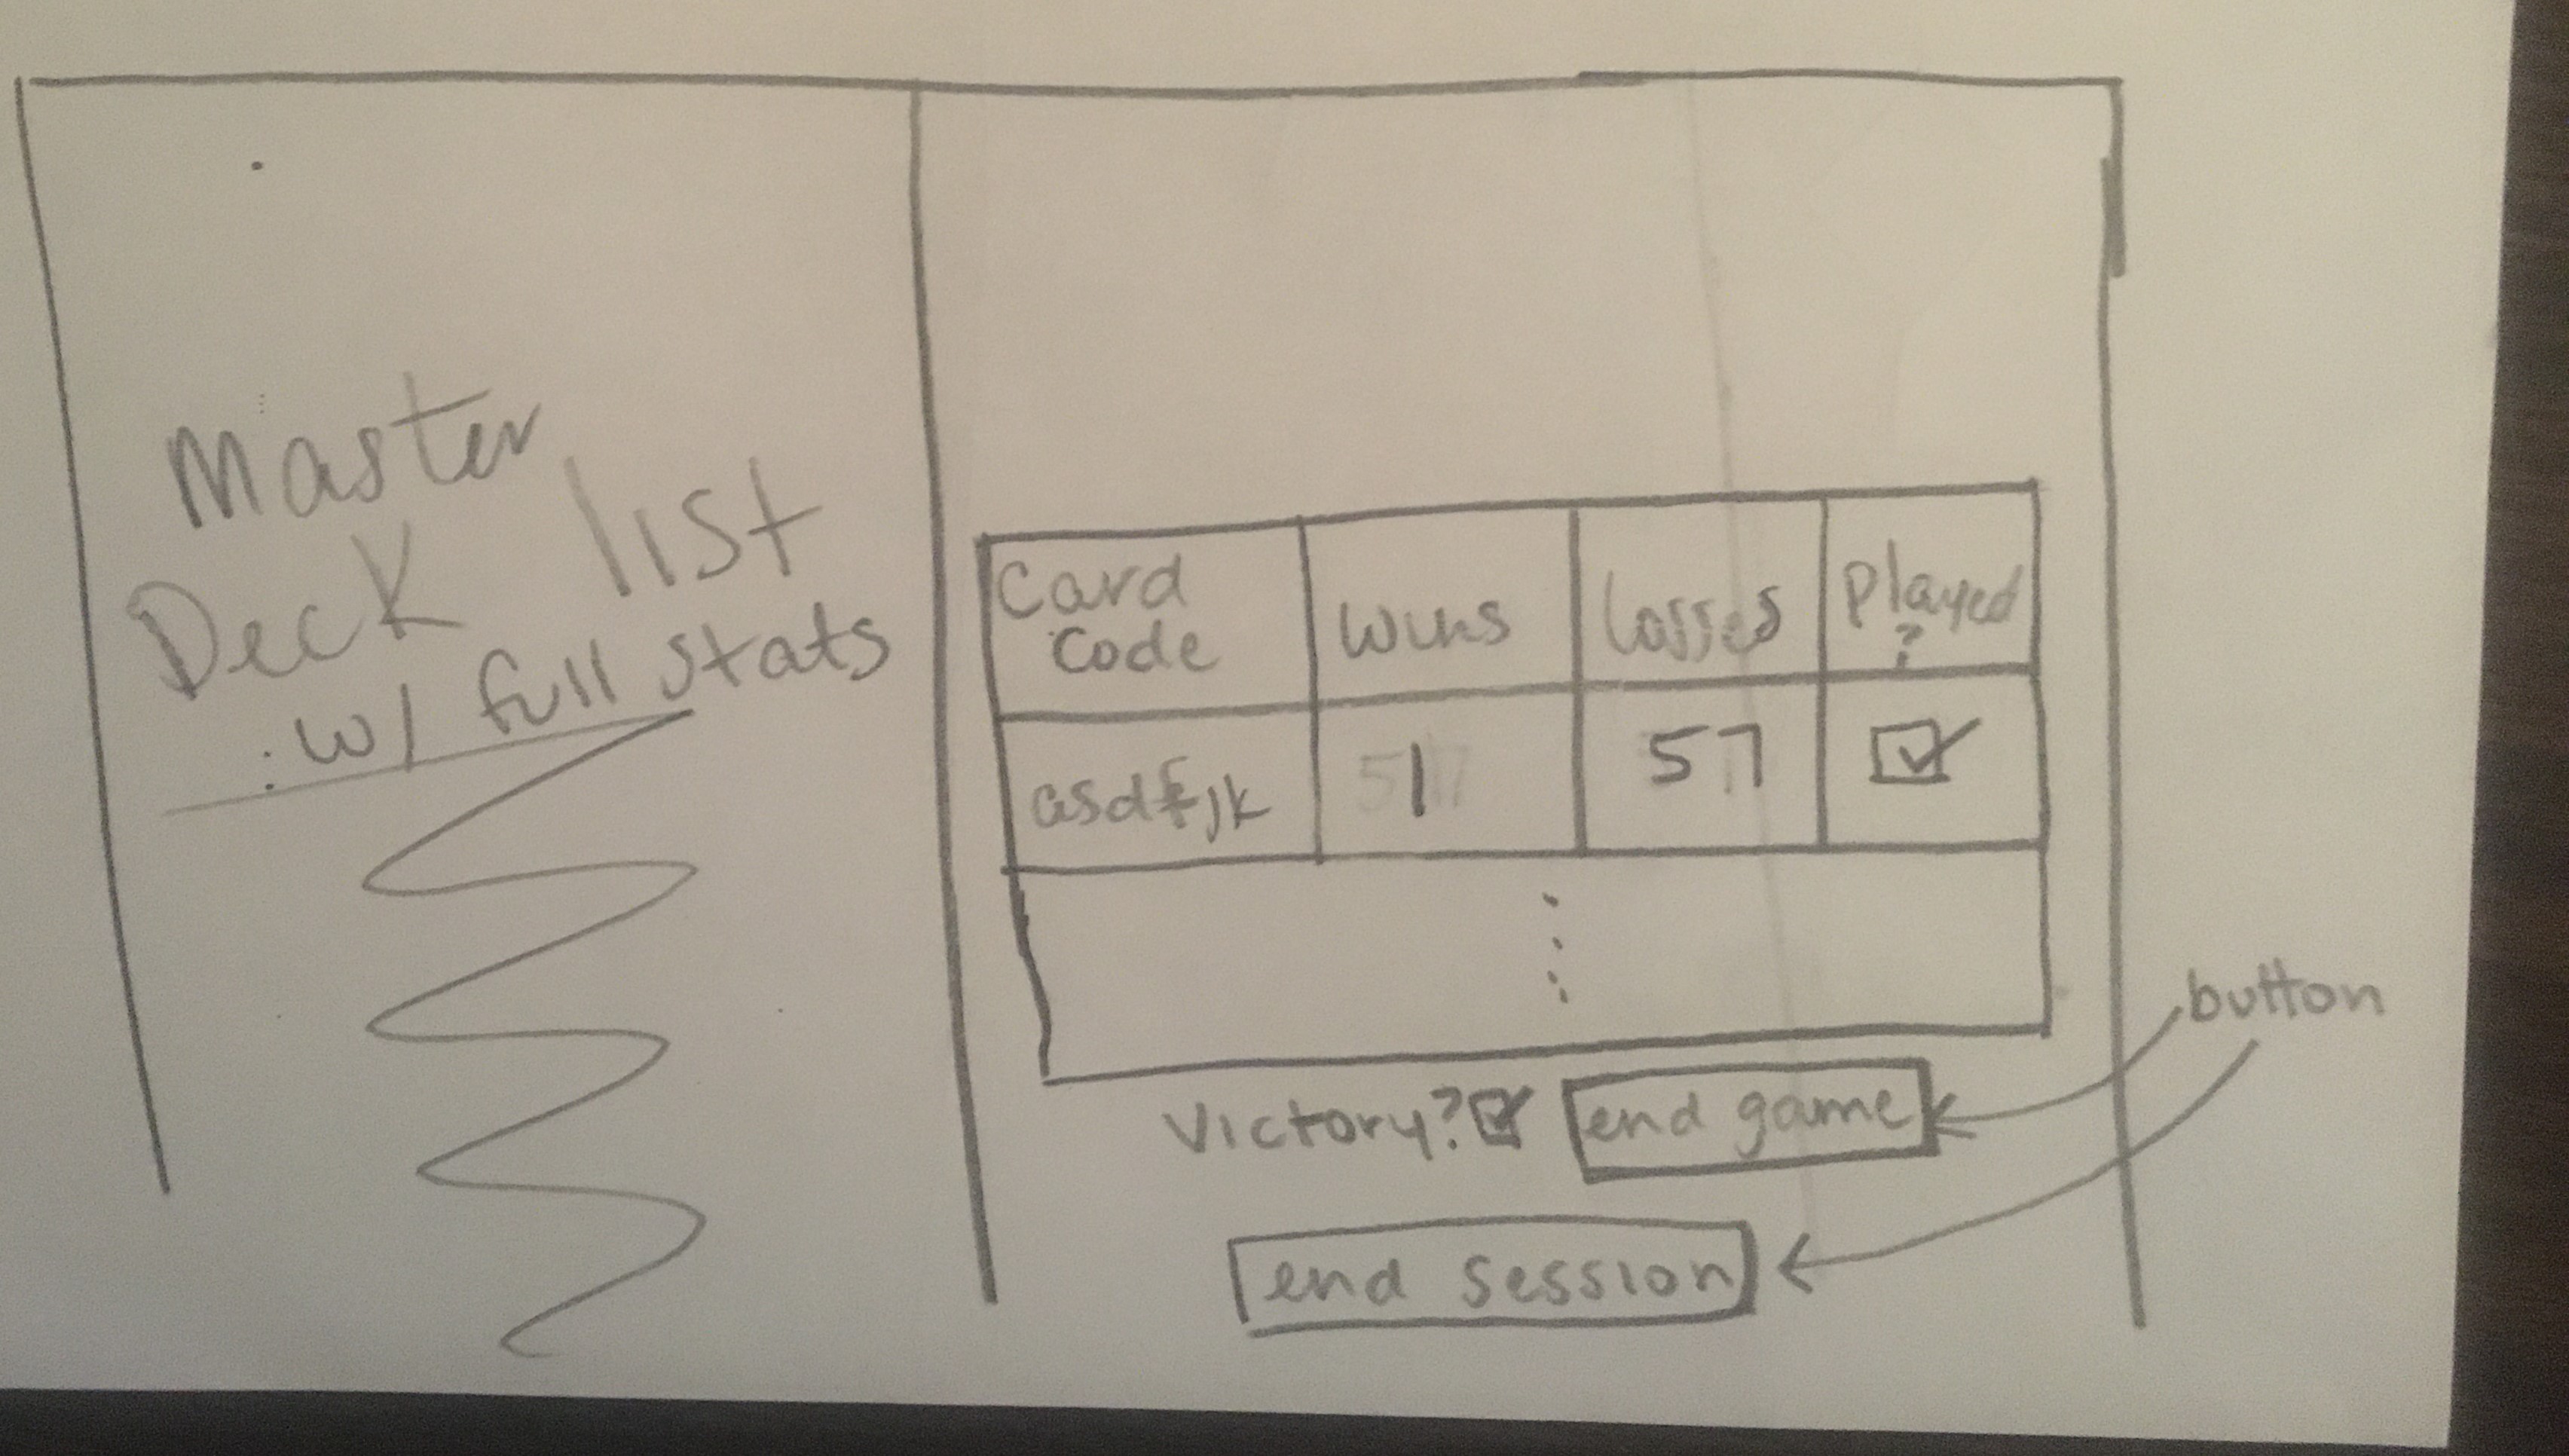 Master
Deck list
: w/ full stats
Card Code
wins
losses
Played ?
asdfjk
1
57
Victory?
end game
end session
button